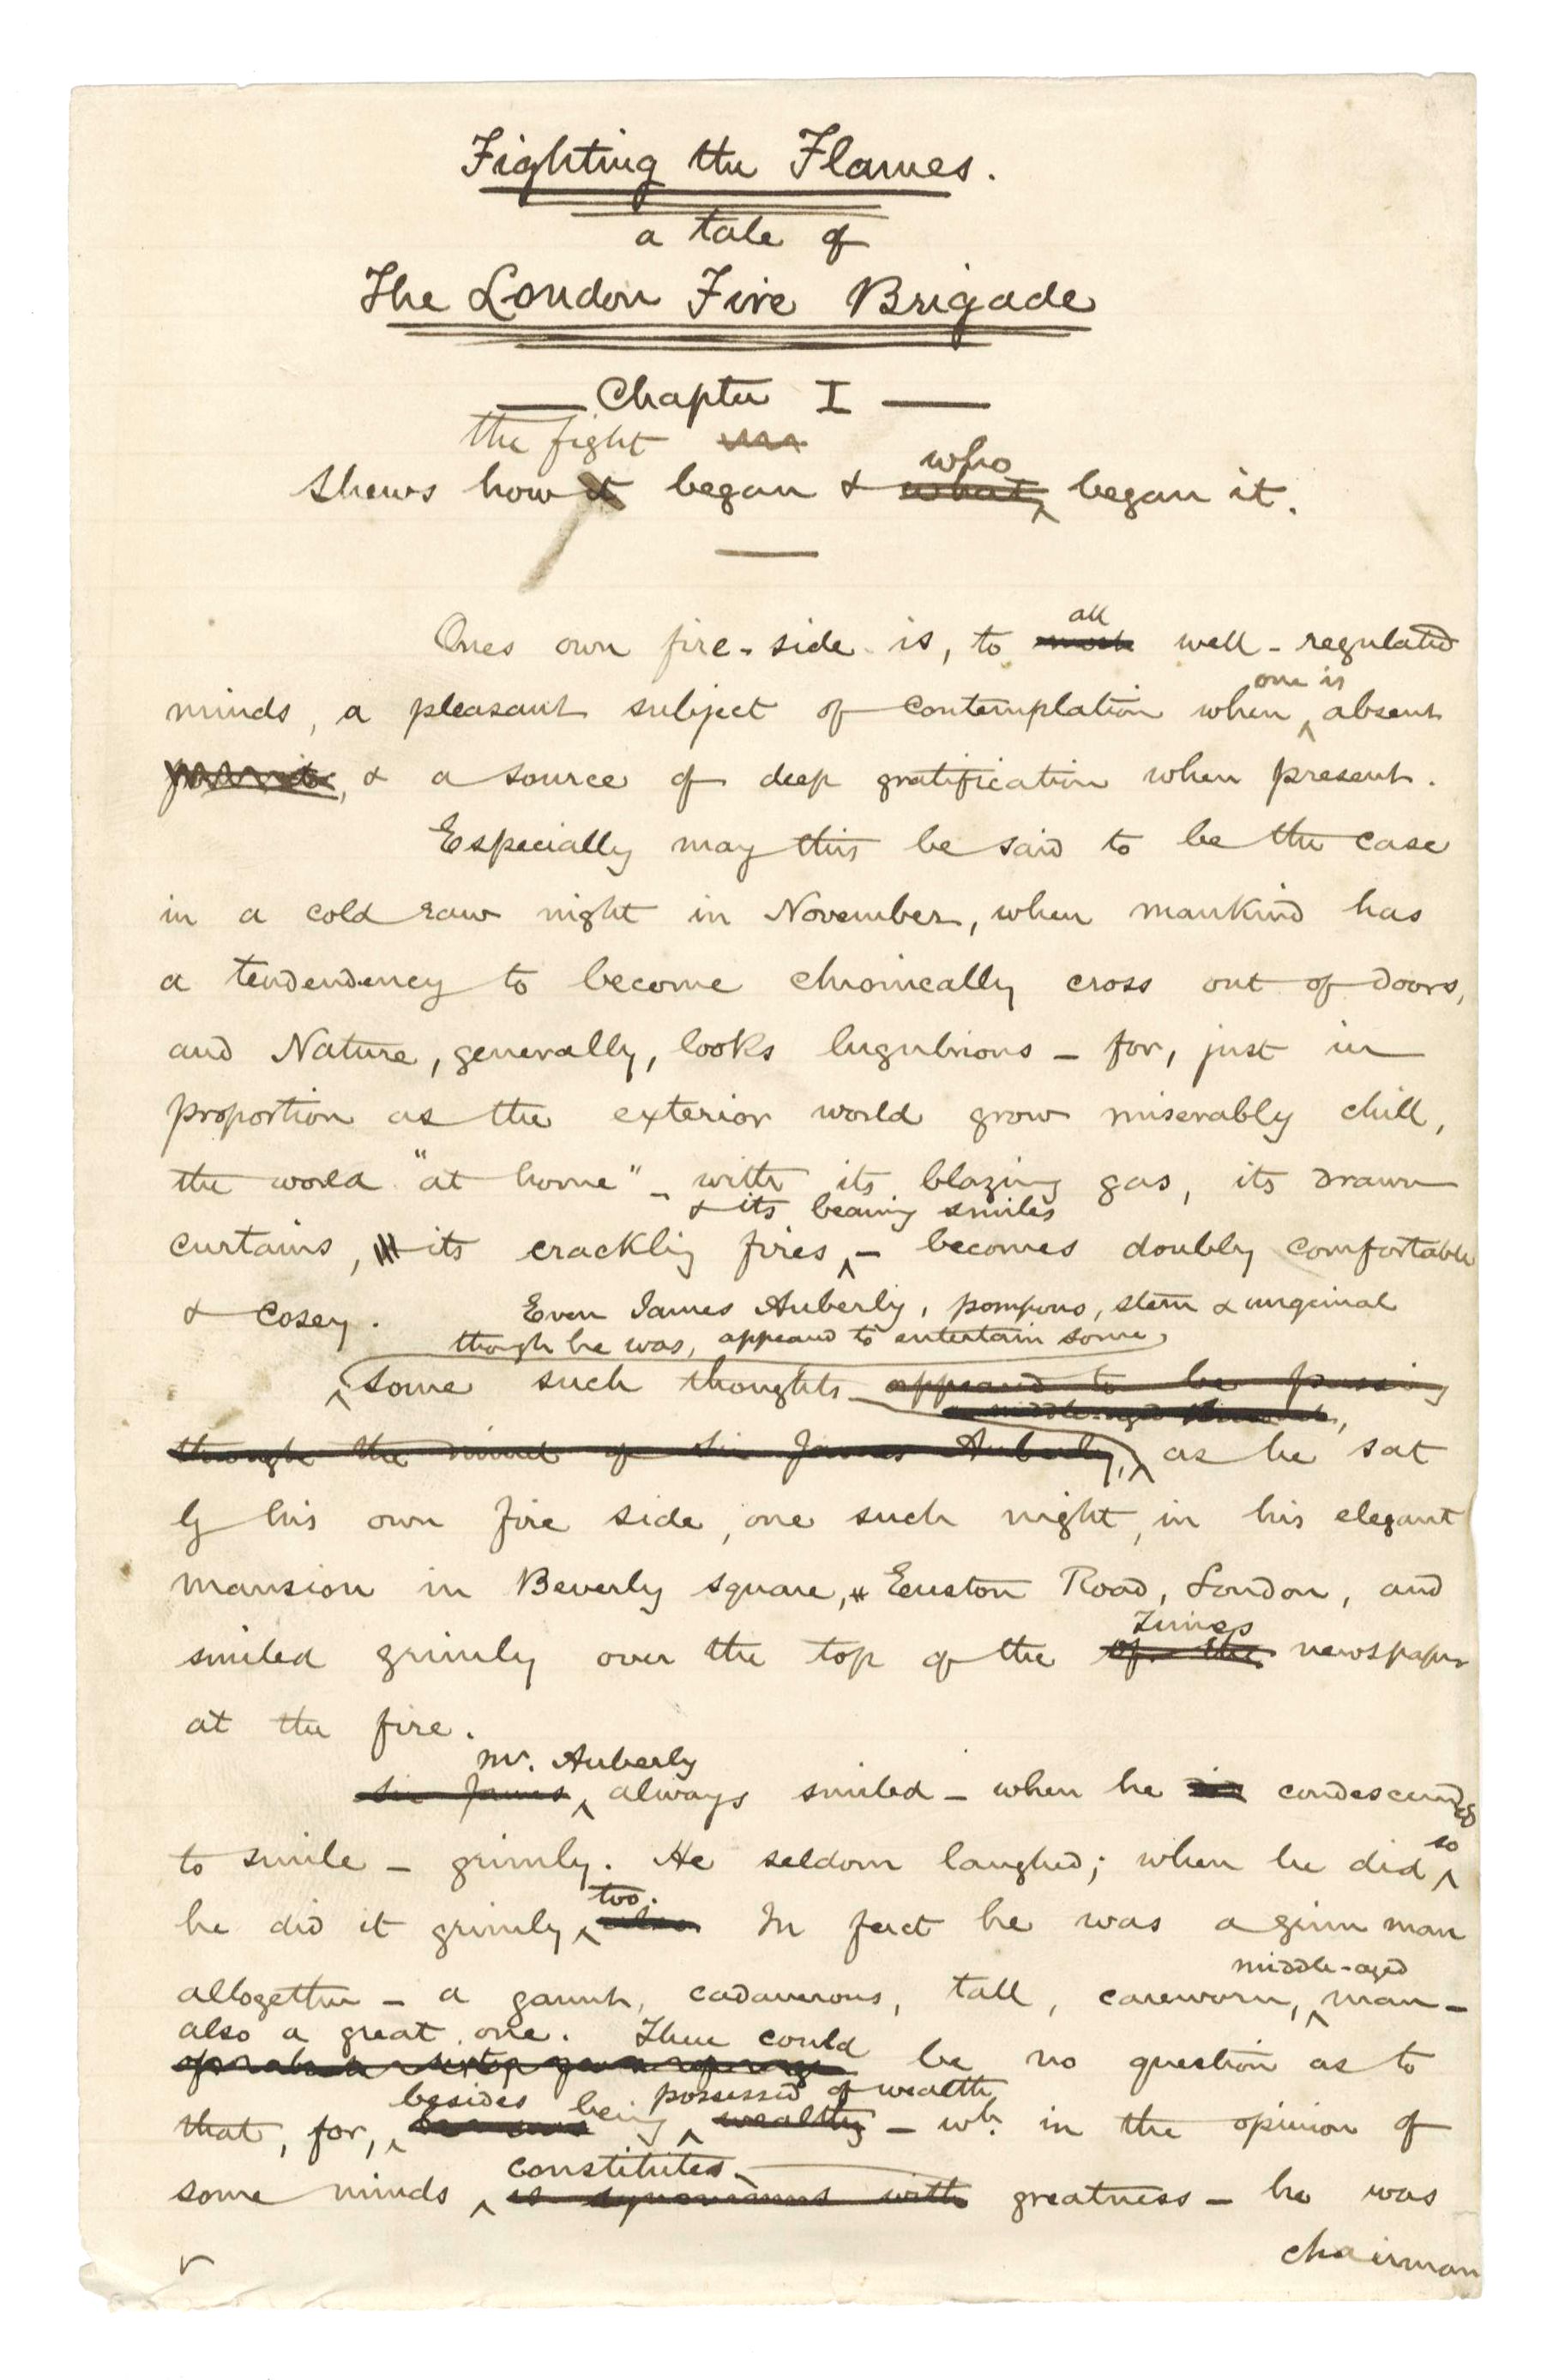 Fighting the Flames.
a tale of
The London Fire Brigade
— Chapter I —
the fight
who
Shews how it began & what began it.
all
Ones own fire-side is, to most well-regulated
one is
minds, a pleasant subject of contemplation when absent
, & a source of deep gratification when present.
Especially may this be said to be the case
in a cold raw night in November, when mankind has
a tendendency to become chronically cross out of doors,
and Nature, generally, looks lugubrious – for, just in
proportion as the exterior world grow miserably chill,
the world "at home" – with its blazing gas, its drawn
& its beaming smiles
curtains, its crackling fires, – becomes doubly comfortable
& cosey. Even James Auberly, pompous, stern & ungenial
though he was, appeared to entertain some
some such thoughts appeared to be passing
a middle-aged
through the mind of Sir James Auberly, as he sat
by his own fire side, one such night, in his elegant
mansion in Beverly square, Euston Road, London, and
Times
smiled grimly over the top of the of the newspaper
at the fire.
Mr. Auberly
Sir James always smiled – when he condescended
so
to smile – grimly. He seldom laughed; when he did
too.
he did it grimly also In fact he was a grim man
middle-aged
altogether – a gaunt, cadaverous, tall, careworn, man –
also a great one. There could
be no question as to
besides possessed of wealth
that, for, he was being wealthy – wh. in the opinion of
constitutes
some minds is synonimous with greatness – he was
chairman